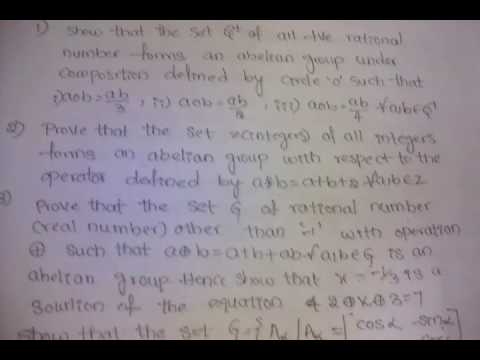 1) show that the set Q⁺ of all +ve rational
number forms an abelian group under
composition defined by circle 'o' such that
i) aob = ab/3 , ii) aob = ab/2 , iii) aob = ab/4 ∀ a,b ∈ Q⁺
2) Prove that the set z(integers) of all integers
forms an abelian group with respect to the
operator defined by a*b = a+b+2 ∀ a,b ∈ Z
3) Prove that the set G of rational number
(real number) other than '-1' with operation
⊕ such that a⊕b = a+b+ab ∀ a,b ∈ G is an
abelian group. Hence show that x = -1/3 is a
solution of the equation 2⊕x⊕3=7
show that the set G = { Aα | Aα = [cosα -sinα